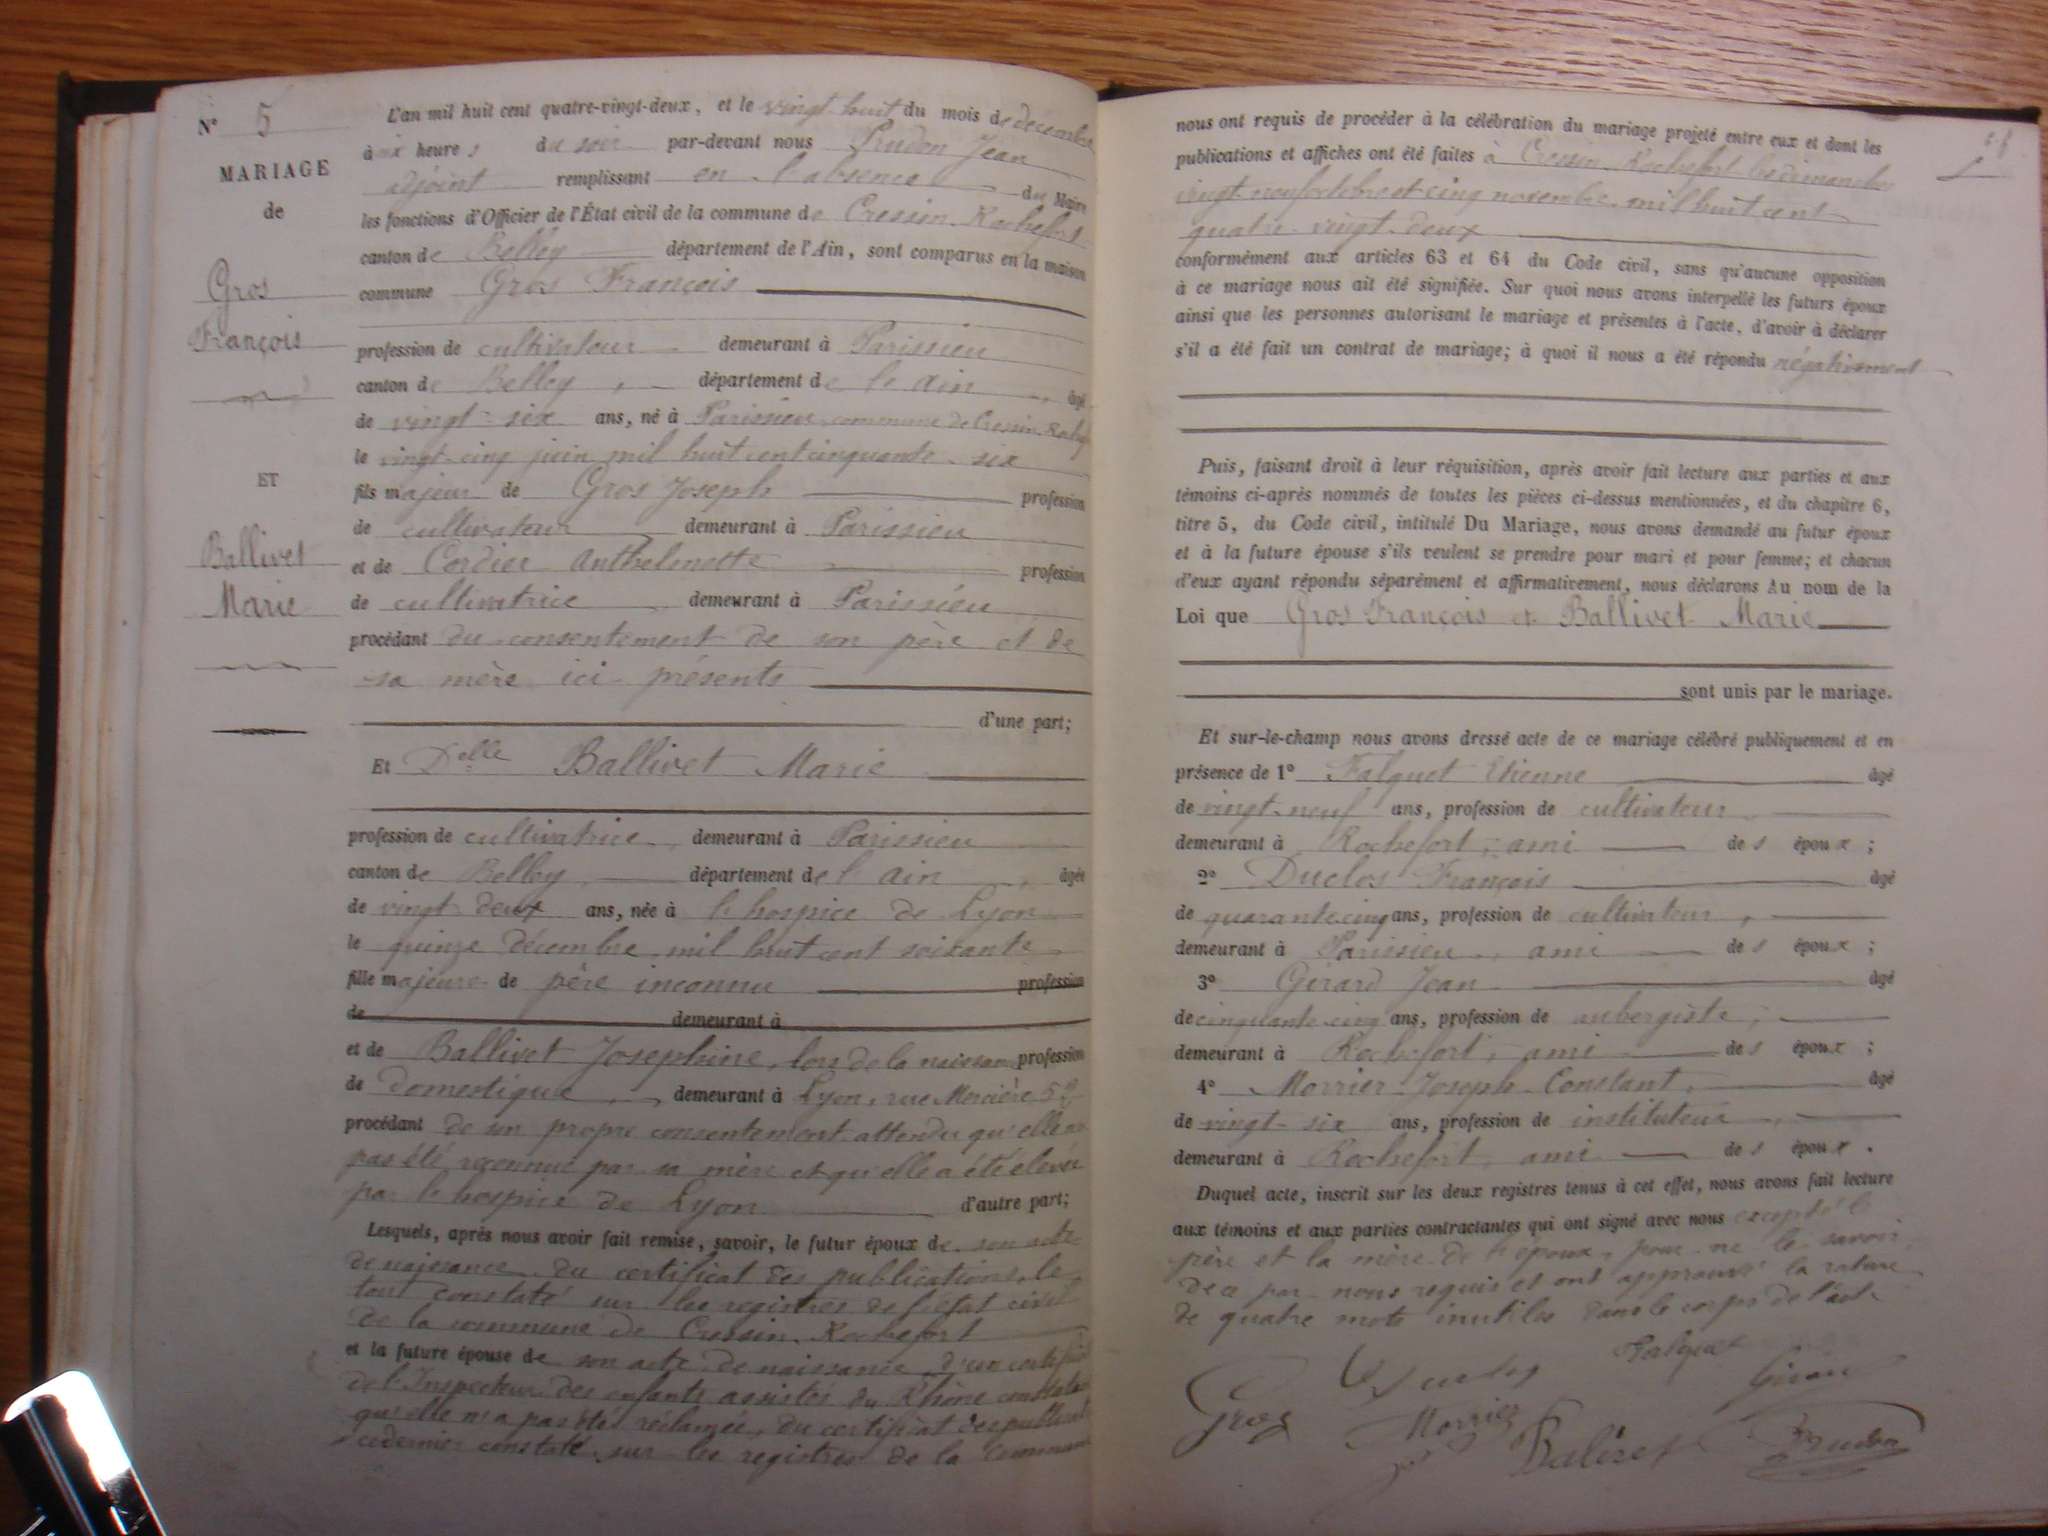 N° 5
MARIAGE
de
Gros
François
ET
Ballivet
Marie
L'an mil huit cent quatre-vingt-deux, et le vingt huit du mois de décembre
à six heures du soir par-devant nous Prudon Jean
adjoint remplissant en l'absence du Maire
les fonctions d'Officier de l'État civil de la commune de Cressin-Rochefort
canton de Belley département de l'Ain, sont comparus en la maison
commune Gros François
profession de cultivateur demeurant à Parissieu
canton de Belley, département de le ain, âgé
de vingt-six ans, né à Parissieu commune de Cressin Rochefort
le vingt-cinq juin mil huit cent cinquante-six
fils majeur de Gros Joseph profession
de cultivateur demeurant à Parissieu
et de Cordier Anthelmette profession
de cultivatrice, demeurant à Parissieu
procédant du consentement de son père et de
sa mère ici présents
d'une part;
Et Delle Ballivet Marie
profession de cultivatrice, demeurant à Parissieu
canton de Belley, département de l'ain, âgée
de vingt deux ans, née à l'hospice de Lyon
le quinze décembre mil huit cent soixante
fille majeure de père inconnu profession
de demeurant à
et de Ballivet Josephine, lors de la naissance profession
de domestique, demeurant à Lyon, rue Mercière
procédant de son propre consentement attendu qu'elle n'a
pas été reconnue par sa mère et qu'elle a été élevée
par l'hospice de Lyon d'autre part;
Lesquels, après nous avoir fait remise, savoir, le futur époux de son acte
de naissance, du certificat des publications, le
tout constaté sur les registres de l'état civil
de la commune de Cressin-Rochefort
et la future épouse de son acte de naissance, d'un certificat
de l'Inspecteur des enfants assistés du Rhône constatant
qu'elle n'a pas été réclamée, du certificat des publications
ce dernier constaté sur les registres de la commune
nous ont requis de procéder à la célébration du mariage projeté entre eux et dont les
publications et affiches ont été faites à Cressin-Rochefort les dimanches
vingt-neuf octobre et cinq novembre mil huit cent
quatre-vingt-deux
conformément aux articles 63 et 64 du Code civil, sans qu'aucune opposition
à ce mariage nous ait été signifiée. Sur quoi nous avons interpellé les futurs époux
ainsi que les personnes autorisant le mariage et présentes à l'acte, d'avoir à déclarer
s'il a été fait un contrat de mariage; à quoi il nous a été répondu négativement
Puis, faisant droit à leur réquisition, après avoir fait lecture aux parties et aux
témoins ci-après nommés de toutes les pièces ci-dessus mentionnées, et du chapitre 6,
titre 5, du Code civil, intitulé Du Mariage, nous avons demandé au futur époux
et à la future épouse s'ils veulent se prendre pour mari et pour femme; et chacun
d'eux ayant répondu séparément et affirmativement, nous déclarons Au nom de la
Loi que Gros François et Ballivet Marie
sont unis par le mariage.
Et sur-le-champ nous avons dressé acte de ce mariage célébré publiquement et en
présence de 1° Falquet Etienne âgé
de vingt-neuf ans, profession de cultivateur
demeurant à Rochefort, ami des époux;
2° Duclos François âgé
de quarante cinq ans, profession de cultivateur,
demeurant à Parissieu, ami des époux;
3° Girard Jean âgé
de cinquante-cinq ans, profession de aubergiste,
demeurant à Rochefort, ami des époux;
4° Morrier Joseph Constant, âgé
de vingt-six ans, profession de instituteur,
demeurant à Rochefort, ami des époux.
Duquel acte, inscrit sur les deux registres tenus à cet effet, nous avons fait lecture
aux témoins et aux parties contractantes qui ont signé avec nous excepté le
père et la mère de l'époux, pour ne le savoir
de ce par nous requis et ont approuvé la rature
de quatre mots inutiles dans le corps de l'acte
Falquet
Duclos Girard
Gros Morrier Balivet Prudon